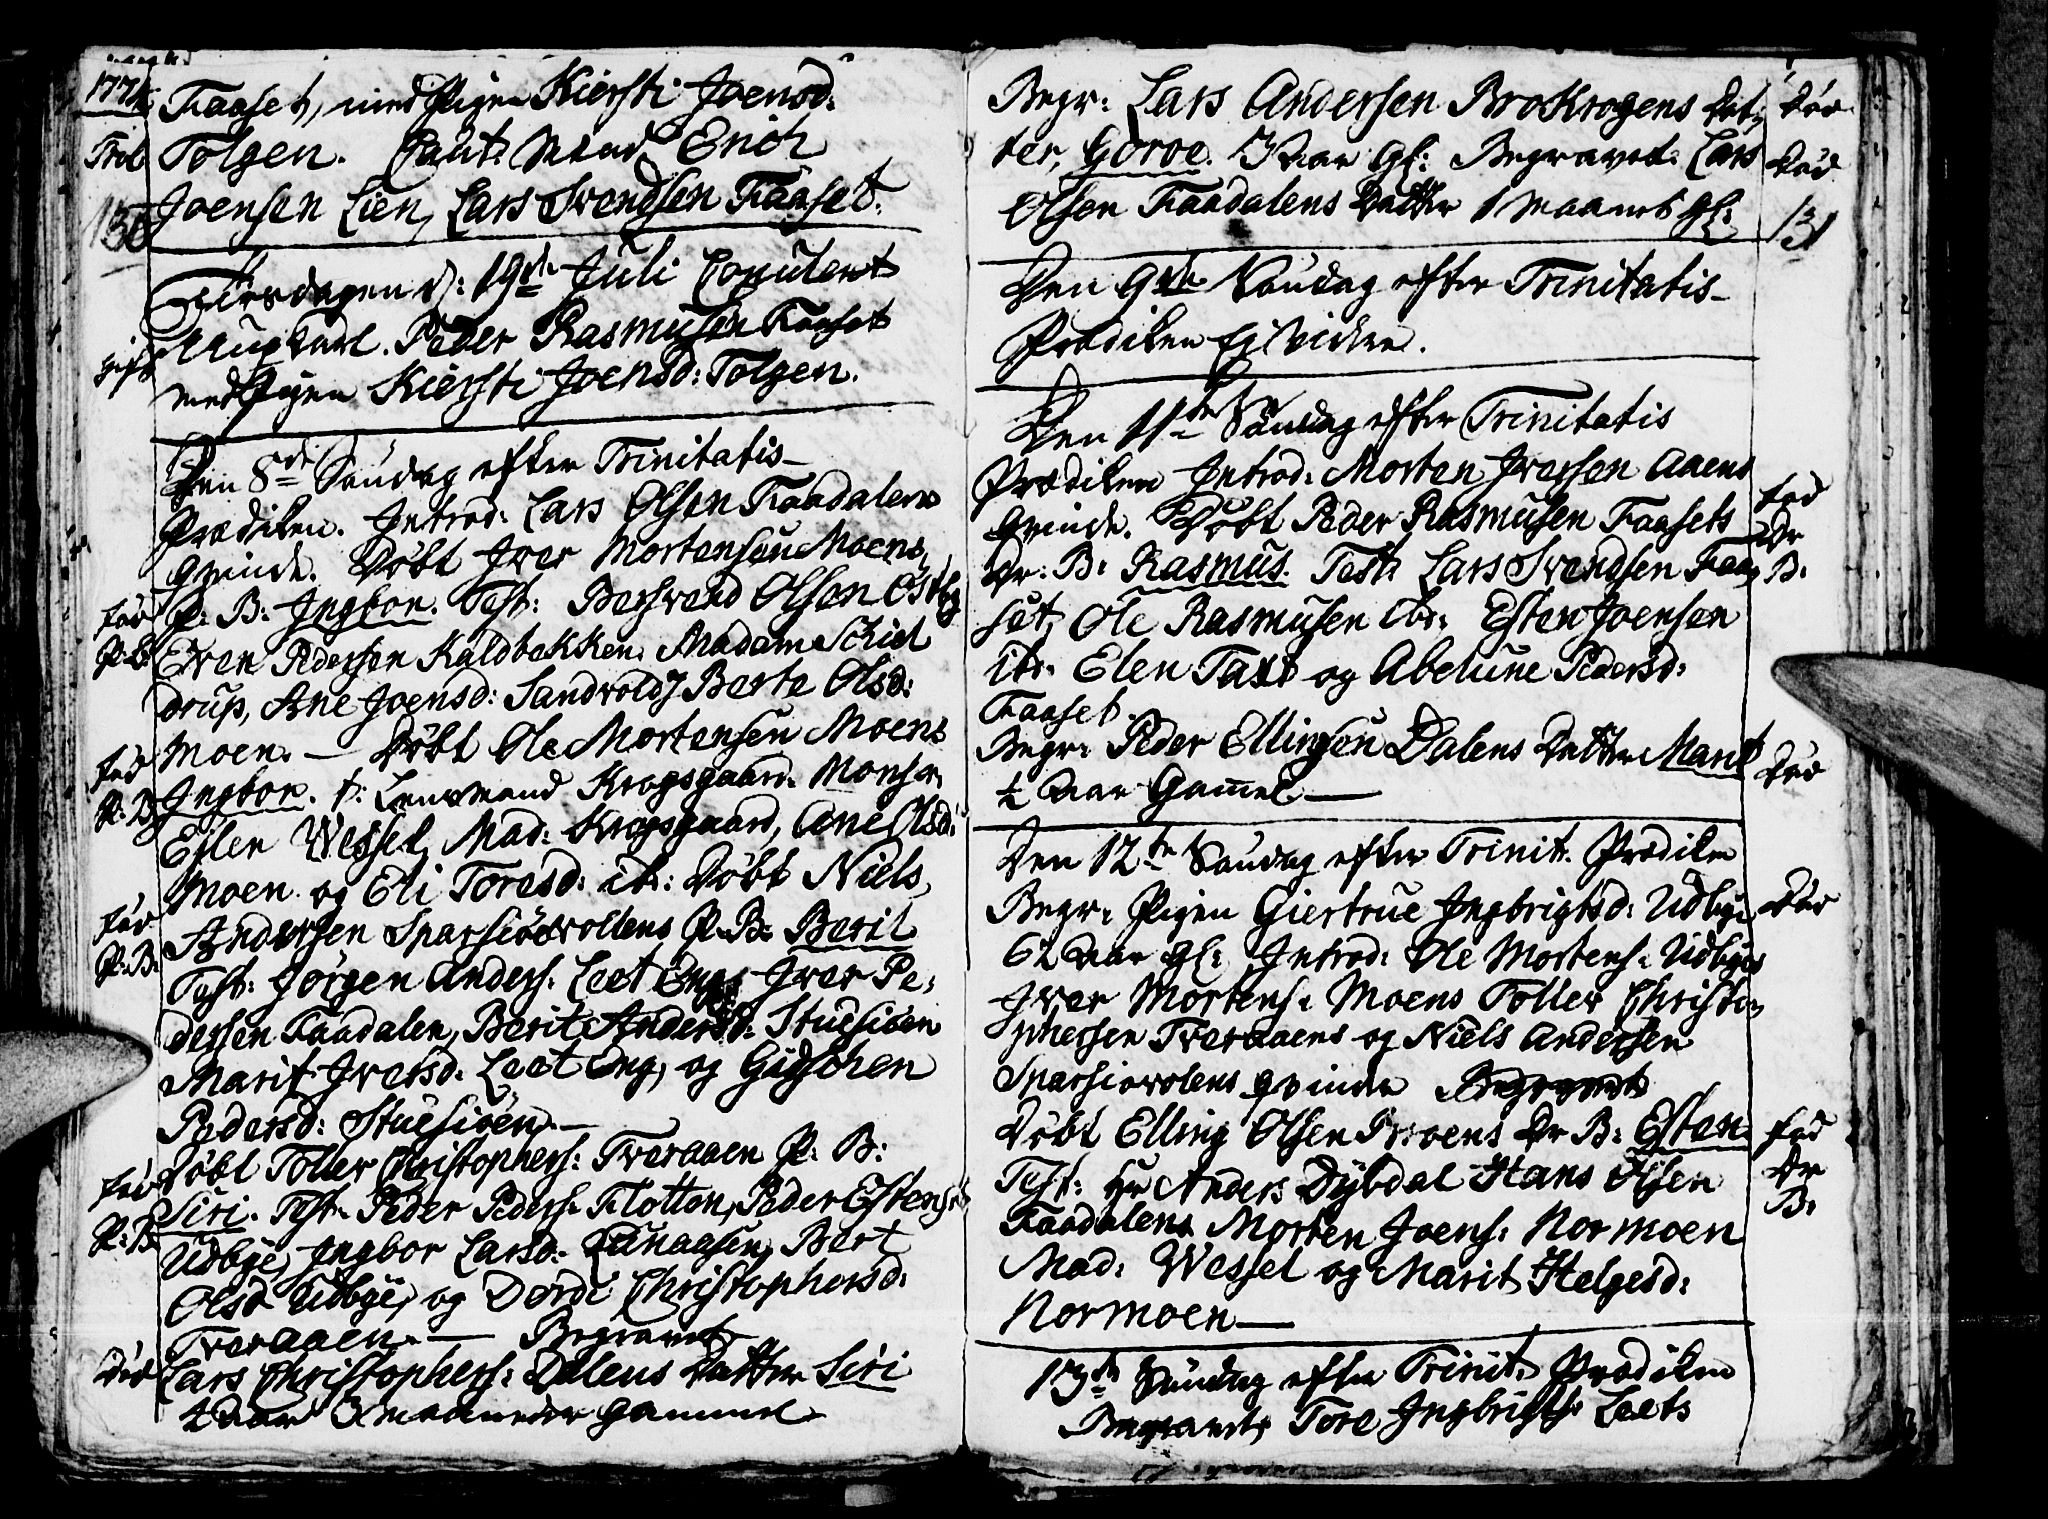 1774
Trol
130
Faaset, med Pigen Kiersti Joensd:
Tolgen. Caut: Mend Erich
Joensen Lien, Lars Svendsen Faaset.
Tirsdagen d: 19de Juli Copuleret
gift
Ung Karl. Peder Rasmusen Faaset
med Pigen Kiersti Joensd: Tolgen.
Den 8de Søndag efter Trinitatis
Prædiken. Introd: Lars Olsen Faadalens
Qvinde. Døbt Iver Mortensen Moens
fød
P: B: Ingbor. Test: Bersvend Olsen Østby
P. B.
Even Pedersen Kaldbekken. Madam Schiel
drup, Ane Joensd: Sandvold, Berte Olsd:
Moen. — Døbt Ole Mortensen Moens
fød
P: B.
Ingbor. t: Lensmand Krogsgaard. Monsr.
Eslen Wessel, Mad: Krogsgaard, Ane Olsd:
Moen og Eli Toresd: ib: Døbt Niels
fød
Andersen Sparsiøvollens P. B. Berit
P. B.
Test: Jørgen Anders. Leet Eng, Iver Pe,
dersen Faadalen, Berit Andersd: Stuesiøen
Marit Iversd: Leet Eng, og Gidschen
Pedersd: Stuesiøen. —
fød
Døbt Toller Christophers: Tveraaen P. B:
Siri. Test: Peder Peders: Flotten, Peder Estens:
P. B.
Udbye, Ingbor Larsd: Lunaasen, Bert
Olsd Udbye, og Dordi Christophersd:
Tveraaen. — Begravet
Død
Lars Christophers: Dalens Datter Siri
½ Aar 3 maaneder gammel
Begr: Lars Andersen Brokrogens Dat,
Død
ter, Goroe. 3 Aar gl: Begravet. Lars
Død
Olsen Faadalens Datter 1 Maanet gl:
131
Den 9de Søndag efter Trinitatis
Prædiken Egl
Den 11te Søndag efter Trinitatis
Prædiken Introd: Morten Iversen Aaens
fød
Qvinde. Døbt Peder Rasmusen Faasets
Dr
Dr: B: Rasmus. Test: Lars Svendsen Faa,
B:
set, Ole Rasmusen ibr: Esten Joensen
ib: Elen Taxt og Abelune Pedersd:
Faaset.
Begr: Peder Ellingsen Dalens Datter Marit
Død
½ Aar Gammel —
Den 12te Søndag efter Trinit: Prædiken
Begr: Pigen Giertrue Ingbrigtsd: Udbye
Død
62 Aar gl: Introd: Ole Mortens: Udbyes
Iver Mortens: Moens Toller Christo,
phersen Tveraaens og Niels Andersen
Sparsiovolens Qvinder Begravet
Døbt Elling Olsen Moens Dr B: Esten.
fød
Dr
B:
Test: Hr Anders Dybdal Hans Olsen
Faadalens Morten Joens: Normoen
Mad: Wessel og Marit Helgesd:
Normoen —
13de Søndag efter Trinit: Prædiken
Begravet, Tore Ingbrigts: Leets